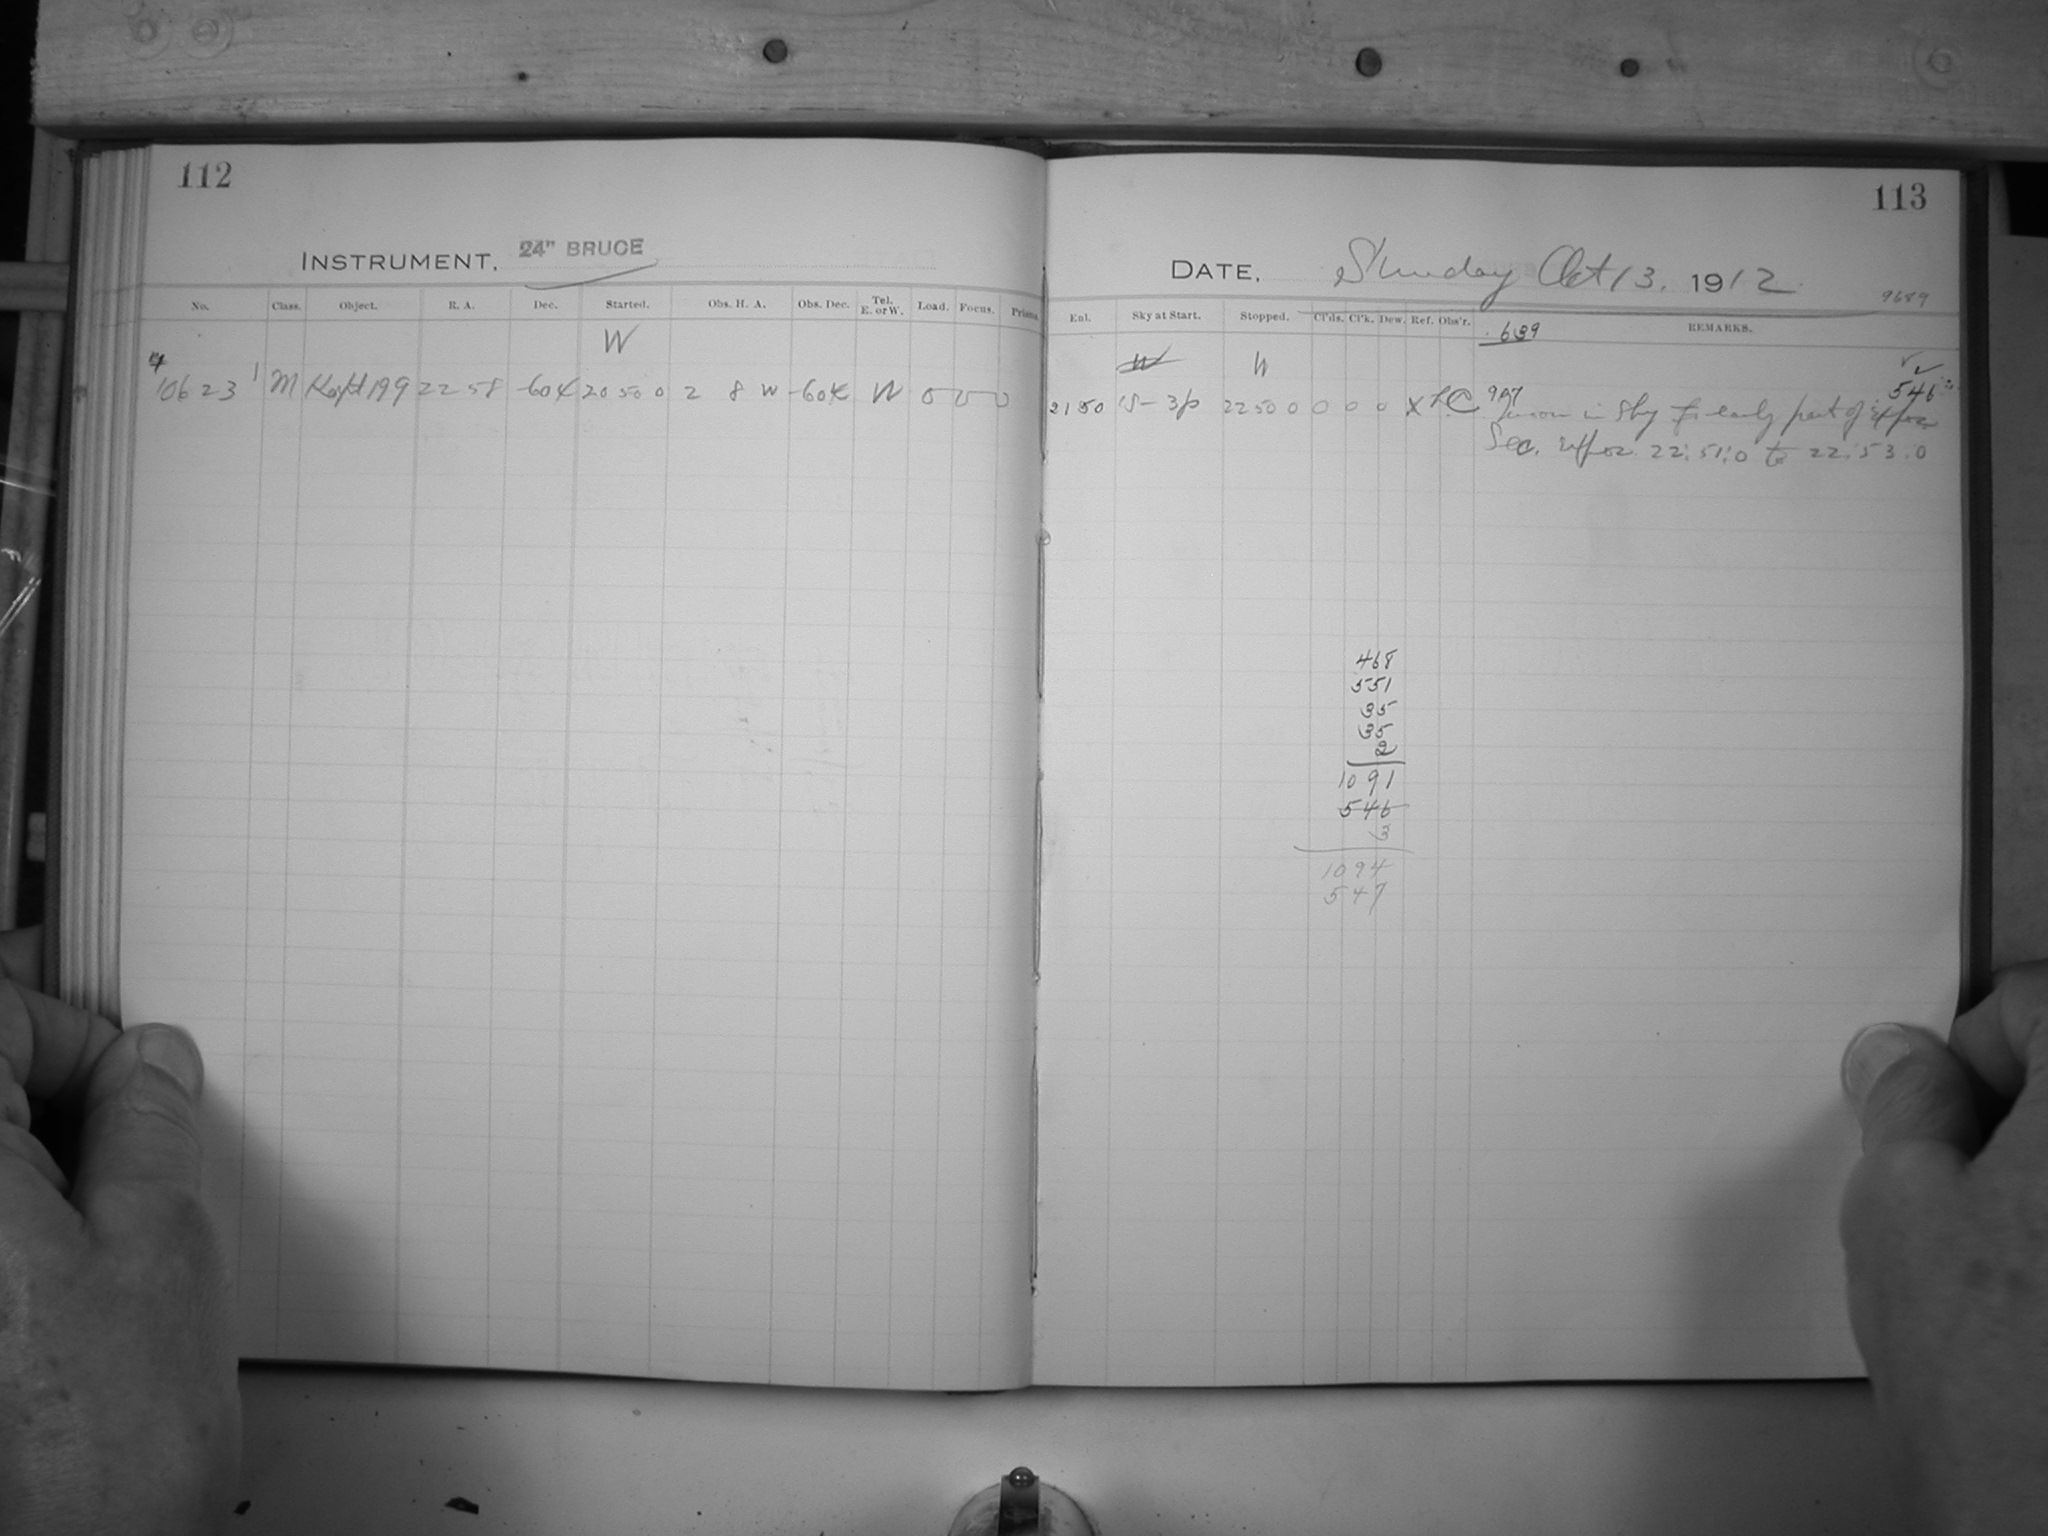 112
113
INSTRUMENT, 24" BRUCE
DATE, Sunday Oct 13, 1912
9689
No. Class. Object. R. A. Dec. Started. Obs. H. A. Obs. Dec. Tel. E. or W. Load. Focus. Prisms.
Enl. Sky at Start. Stopped. Cl'ds. Cl'k. Dew. Ref. Obs'r. REMARKS.
639
W
W W
10623 1 M 199 22 58 -60 20 50 0 2 8 W -60 W 0 0 0
21 50 22 50 0 0 0 0 X 997 546
moon in sky for early part of expos
Sec. expos. 22:51:0 to 22:53:0
468
551
35
35
2
1091
546
3
1094
547